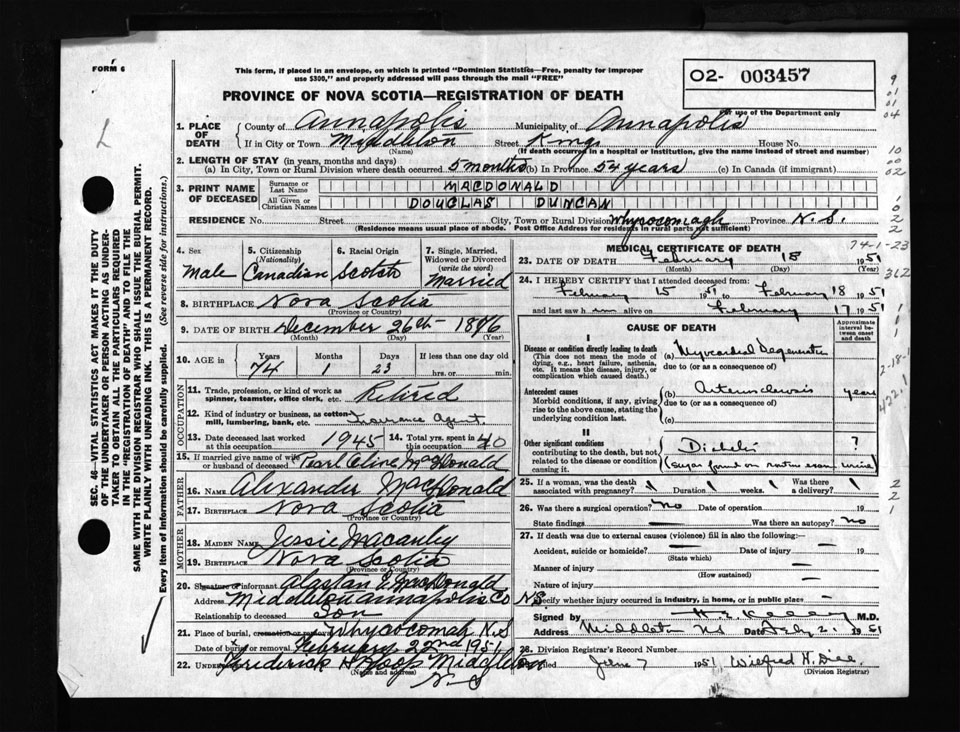 FORM 6
This form, if placed in an envelope, on which is printed "Dominion Statistics—Free, penalty for improper
use $300," and properly addressed will pass through the mail "FREE"
O2- 003457
PROVINCE OF NOVA SCOTIA—REGISTRATION OF DEATH
For use of the Department only
1. PLACE OF DEATH { County of Annapolis Municipality of Annapolis
If in City or Town Middleton Street King House No.
(Name) (If death occurred in a hospital or institution, give the name instead of street and number)
2. LENGTH OF STAY (in years, months and days)
(a) In City, Town or Rural Division where death occurred 5 months (b) In Province 54 years (c) In Canada (if immigrant)
3. PRINT NAME OF DECEASED { Surname or Last Name MACDONALD
All Given or Christian Names DOUGLAS DUNCAN
RESIDENCE No. Street City, Town or Rural Division Whycocomagh Province N.S.
(Residence means usual place of abode. Post Office Address for residents in rural parts not sufficient)
4. Sex Male
5. Citizenship (Nationality) Canadian
6. Racial Origin Scotch
7. Single, Married, Widowed or Divorced (write the word) Married
8. BIRTHPLACE Nova Scotia
(Province or Country)
9. DATE OF BIRTH December 26th 1876
(Month) (Day) (Year)
10. AGE in { Years 74 Months 1 Days 23 If less than one day old
hrs. or min.
OCCUPATION
11. Trade, profession, or kind of work as spinner, teamster, office clerk, etc. Retired
12. Kind of industry or business, as cotton-mill, lumbering, bank, etc. Agent
13. Date deceased last worked at this occupation 1945 14. Total yrs. spent in this occupation 40
15. If married give name of wife or husband of deceased Pearl Olive MacDonald
FATHER
16. NAME Alexander MacDonald
17. BIRTHPLACE Nova Scotia
(Province or Country)
MOTHER
18. MAIDEN NAME Jessie Macauley
19. BIRTHPLACE Nova Scotia
(Province or Country)
20. Signature of informant MacDonald
Address Middleton Annapolis Co NS
Relationship to deceased Son
21. Place of burial, cremation or removal Whycocomah N.S
Date of burial or removal February 22nd 1951
22. Undertaker Frederick H Middleton
(Name and address)
N.S
MEDICAL CERTIFICATE OF DEATH
23. DATE OF DEATH February 18 1951
(Month) (Day) (Year)
24. I HEREBY CERTIFY that I attended deceased from:
February 15 1951 to February 18 1951
and last saw him alive on February 17 1951
CAUSE OF DEATH
Approximate interval between onset and death
Disease or condition directly leading to death
(This does not mean the mode of dying, e.g., heart failure, asthenia, etc. It means the disease, injury, or complication which caused death.)
(a) Myocardial Degeneration
due to (or as a consequence of)
Antecedent causes
Morbid conditions, if any, giving rise to the above cause, stating the underlying condition last.
(b) Arteriosclerosis years
due to (or as a consequence of)
(c)
II
Other significant conditions
contributing to the death, but not related to the disease or condition causing it.
Diabetes ?
(sugar found on routine exam urine)
25. If a woman, was the death associated with pregnancy? Duration weeks. Was there a delivery?
26. Was there a surgical operation? No Date of operation 19
State findings Was there an autopsy? no
27. If death was due to external causes (violence) fill in also the following:—
Accident, suicide or homicide? Date of injury 19
(State which)
Manner of injury
(How sustained)
Nature of injury
Specify whether injury occurred in industry, in home, or in public place
Signed by M.D.
Address Middleton NS Date 1951
28. Division Registrar's Record Number
Filed June 7 1951 Wilfred H.
(Division Registrar)
SEC. 46—VITAL STATISTICS ACT MAKES IT THE DUTY
OF THE UNDERTAKER OR PERSON ACTING AS UNDER-
TAKER TO OBTAIN ALL THE PARTICULARS REQUIRED
IN THE "REGISTRATION OF DEATH" AND TO FILE THE
SAME WITH THE DIVISION REGISTRAR WHO SHALL ISSUE THE BURIAL PERMIT.
WRITE PLAINLY WITH UNFADING INK. THIS IS A PERMANENT RECORD.
Every item of information should be carefully supplied. (See reverse side for instructions.)
9
01
01
04
10
00
02
0
2
2
74-1-23
362
2-18-
422.1
2
2
1